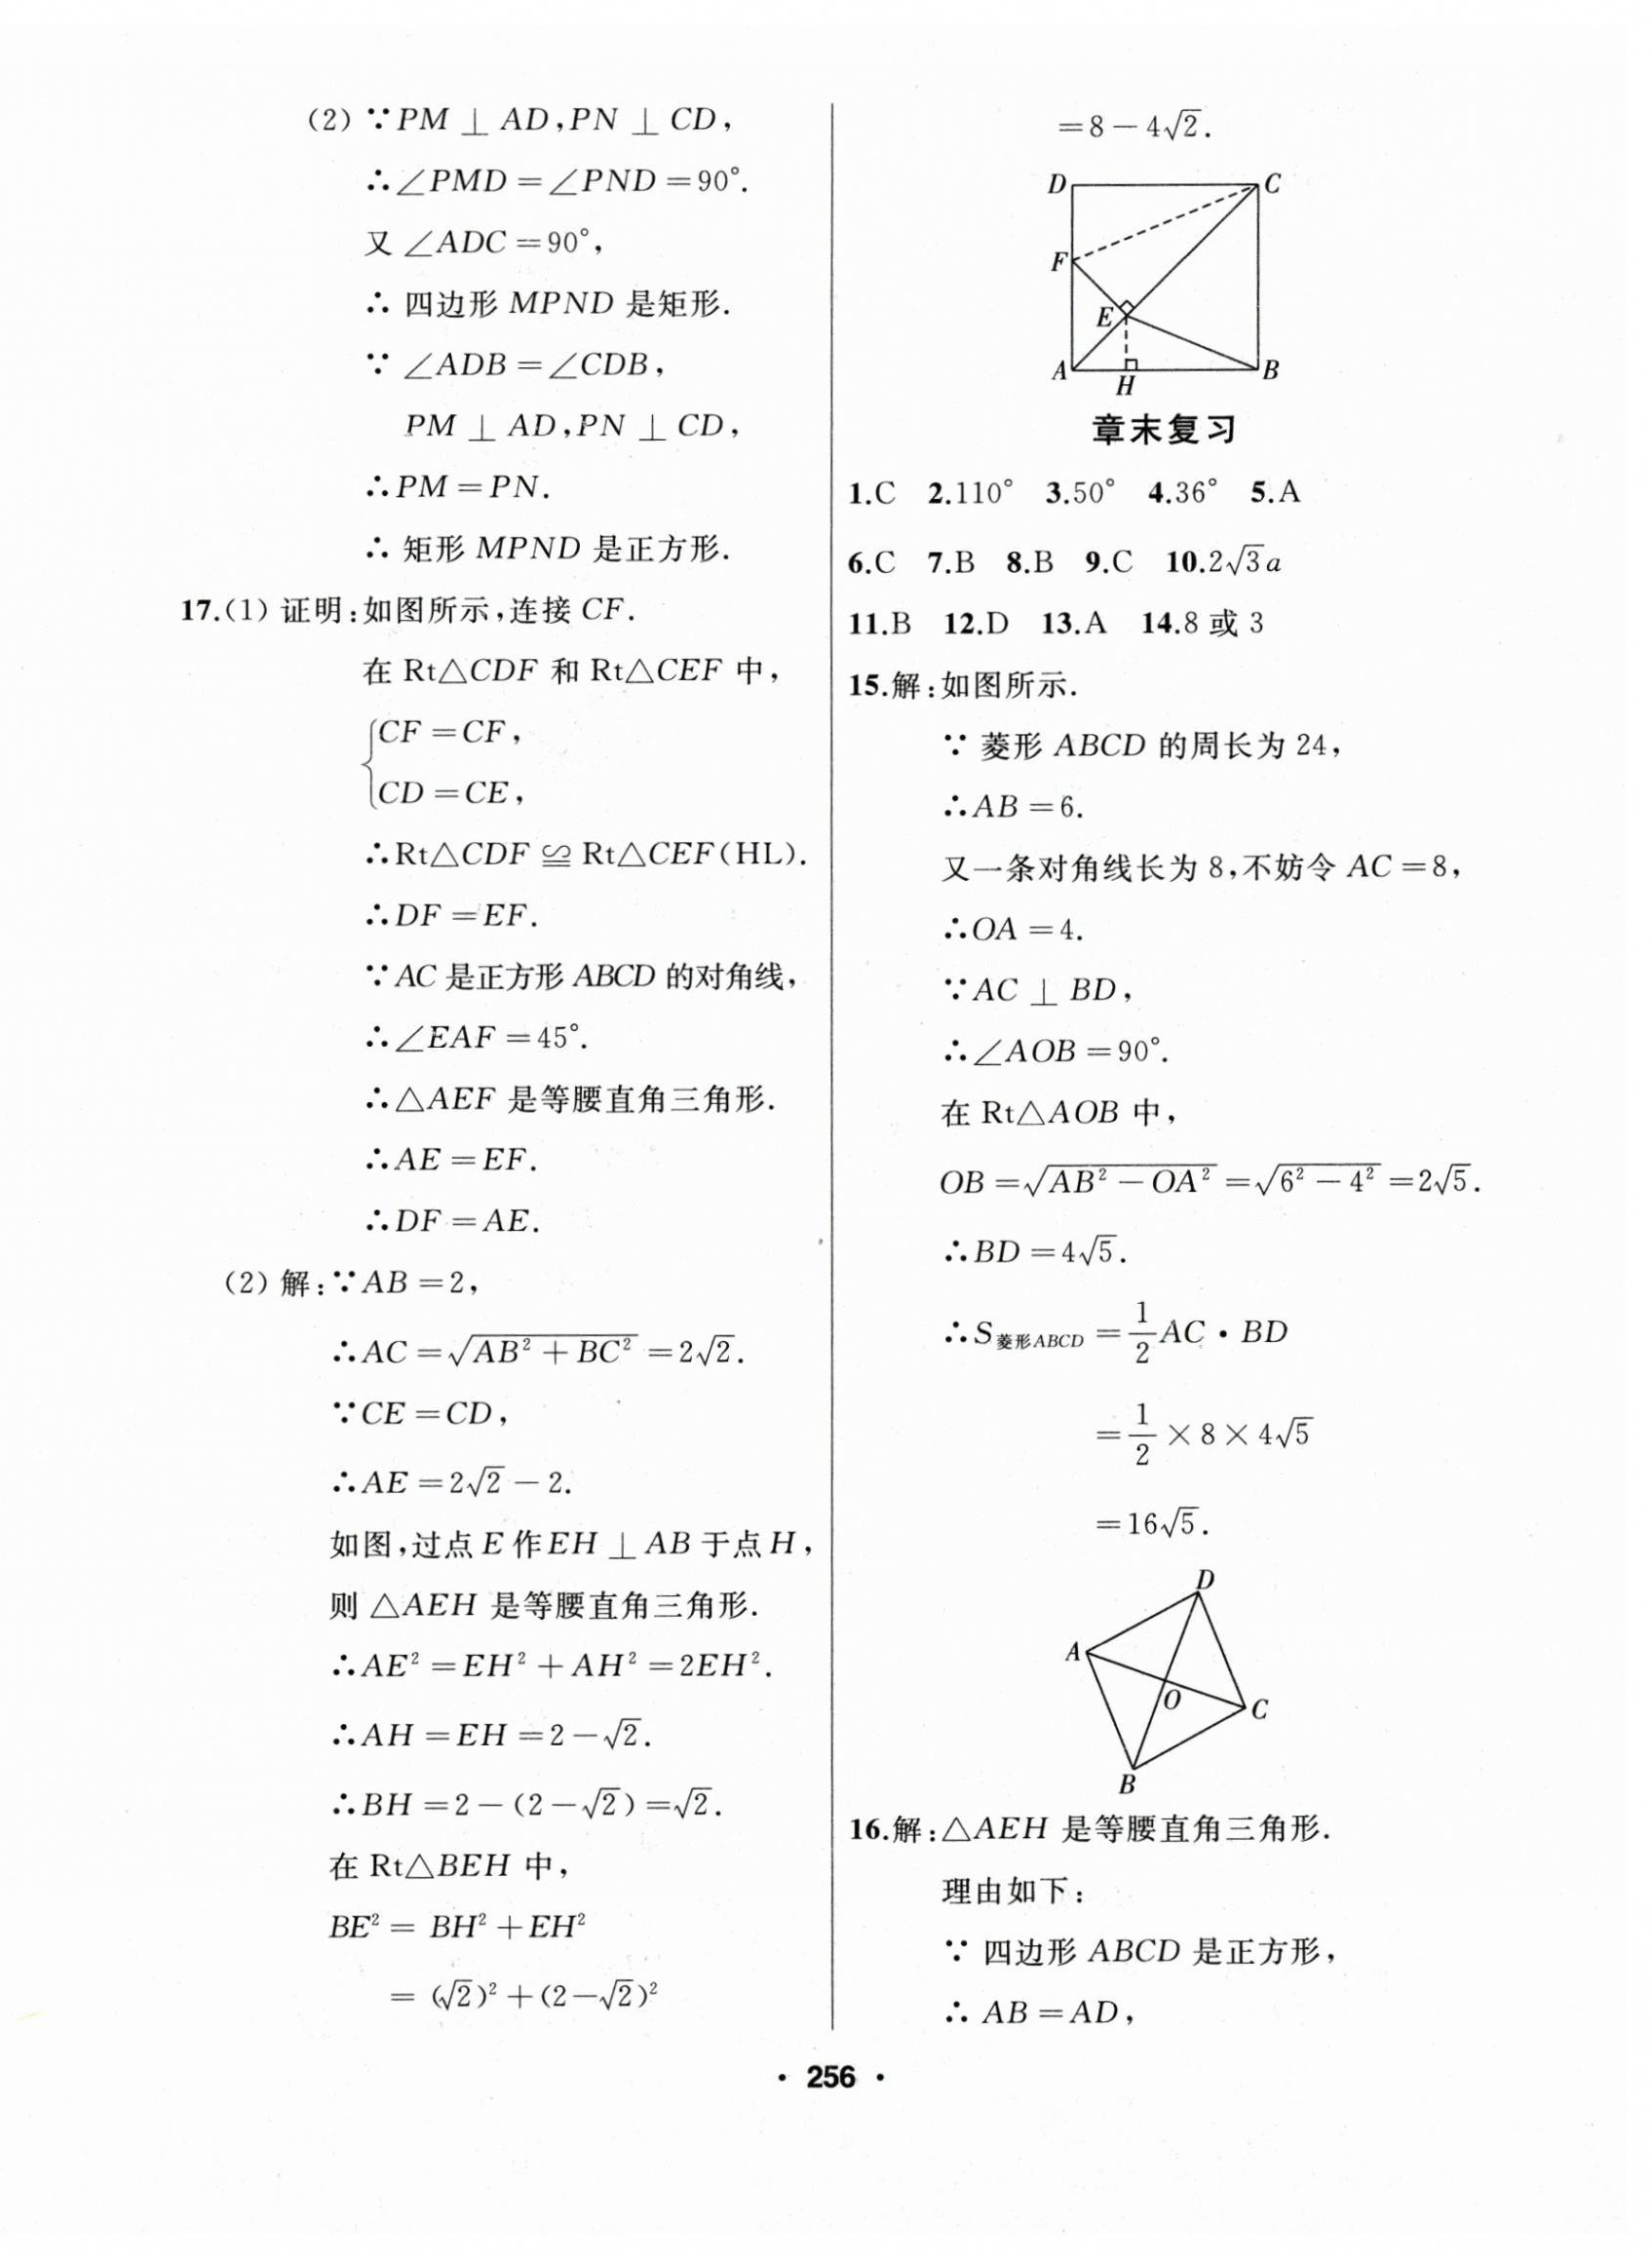 (2) ∵PM ⊥ AD,PN ⊥ CD,
∴∠PMD=∠PND=90°.
又 ∠ADC=90°,
∴ 四边形 MPND 是矩形.
∵ ∠ADB=∠CDB,
PM ⊥ AD,PN ⊥ CD,
∴PM=PN.
∴ 矩形 MPND 是正方形.
17.(1) 证明:如图所示,连接 CF.
在 Rt△CDF 和 Rt△CEF 中,
{CF=CF,
CD=CE,
∴Rt△CDF ≌ Rt△CEF(HL).
∴DF=EF.
∵AC 是正方形 ABCD 的对角线,
∴∠EAF=45°.
∴△AEF 是等腰直角三角形.
∴AE=EF.
∴DF=AE.
(2) 解:∵AB=2,
∴AC=√(AB²+BC²)=2√2.
∵CE=CD,
∴AE=2√2-2.
如图,过点 E 作 EH ⊥ AB 于点 H,
则 △AEH 是等腰直角三角形.
∴AE²=EH²+AH²=2EH².
∴AH=EH=2-√2.
∴BH=2-(2-√2)=√2.
在 Rt△BEH 中,
BE²= BH²+EH²
= (√2)²+(2-√2)²
=8-4√2.
D C
F
E
A H B
章末复习
1.C 2.110° 3.50° 4.36° 5.A
6.C 7.B 8.B 9.C 10.2√3a
11.B 12.D 13.A 14.8 或 3
15.解:如图所示.
∵ 菱形 ABCD 的周长为 24,
∴AB=6.
又一条对角线长为 8,不妨令 AC=8,
∴OA=4.
∵AC ⊥ BD,
∴∠AOB=90°.
在 Rt△AOB 中,
OB=√(AB²-OA²)=√(6²-4²)=2√5.
∴BD=4√5.
∴S菱形ABCD=1/2 AC·BD
=1/2×8×4√5
=16√5.
D
A
O
C
B
16.解:△AEH 是等腰直角三角形.
理由如下:
∵ 四边形 ABCD 是正方形,
∴ AB=AD,
· 256 ·